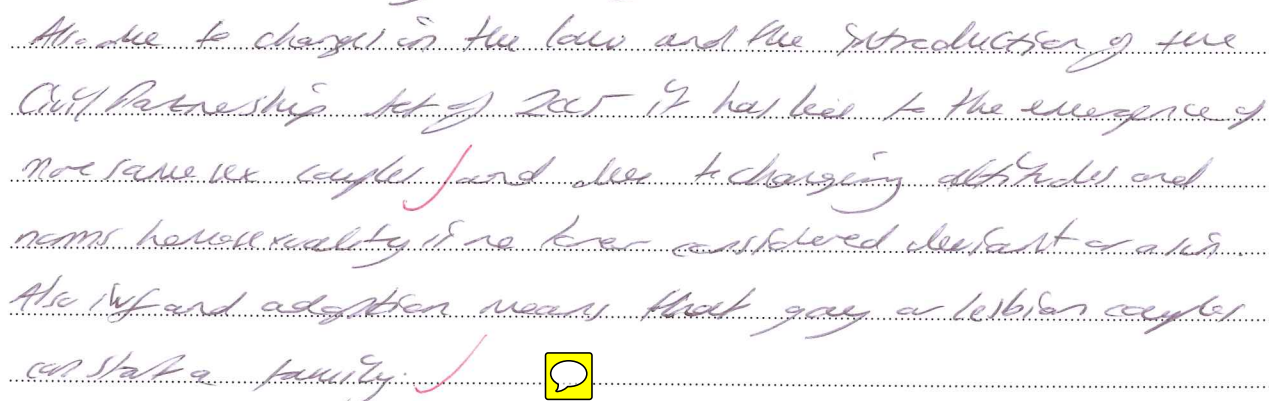 Also due to changes in the law and the introduction of the
Civil Partnership Act of 2005 it has led to the emergence of
more same sex couples and due to changing attitudes and
norms homosexuality is no longer considered deviant or a sin.
Also ivf and adoption means that gay or lesbian couples
can start a family.